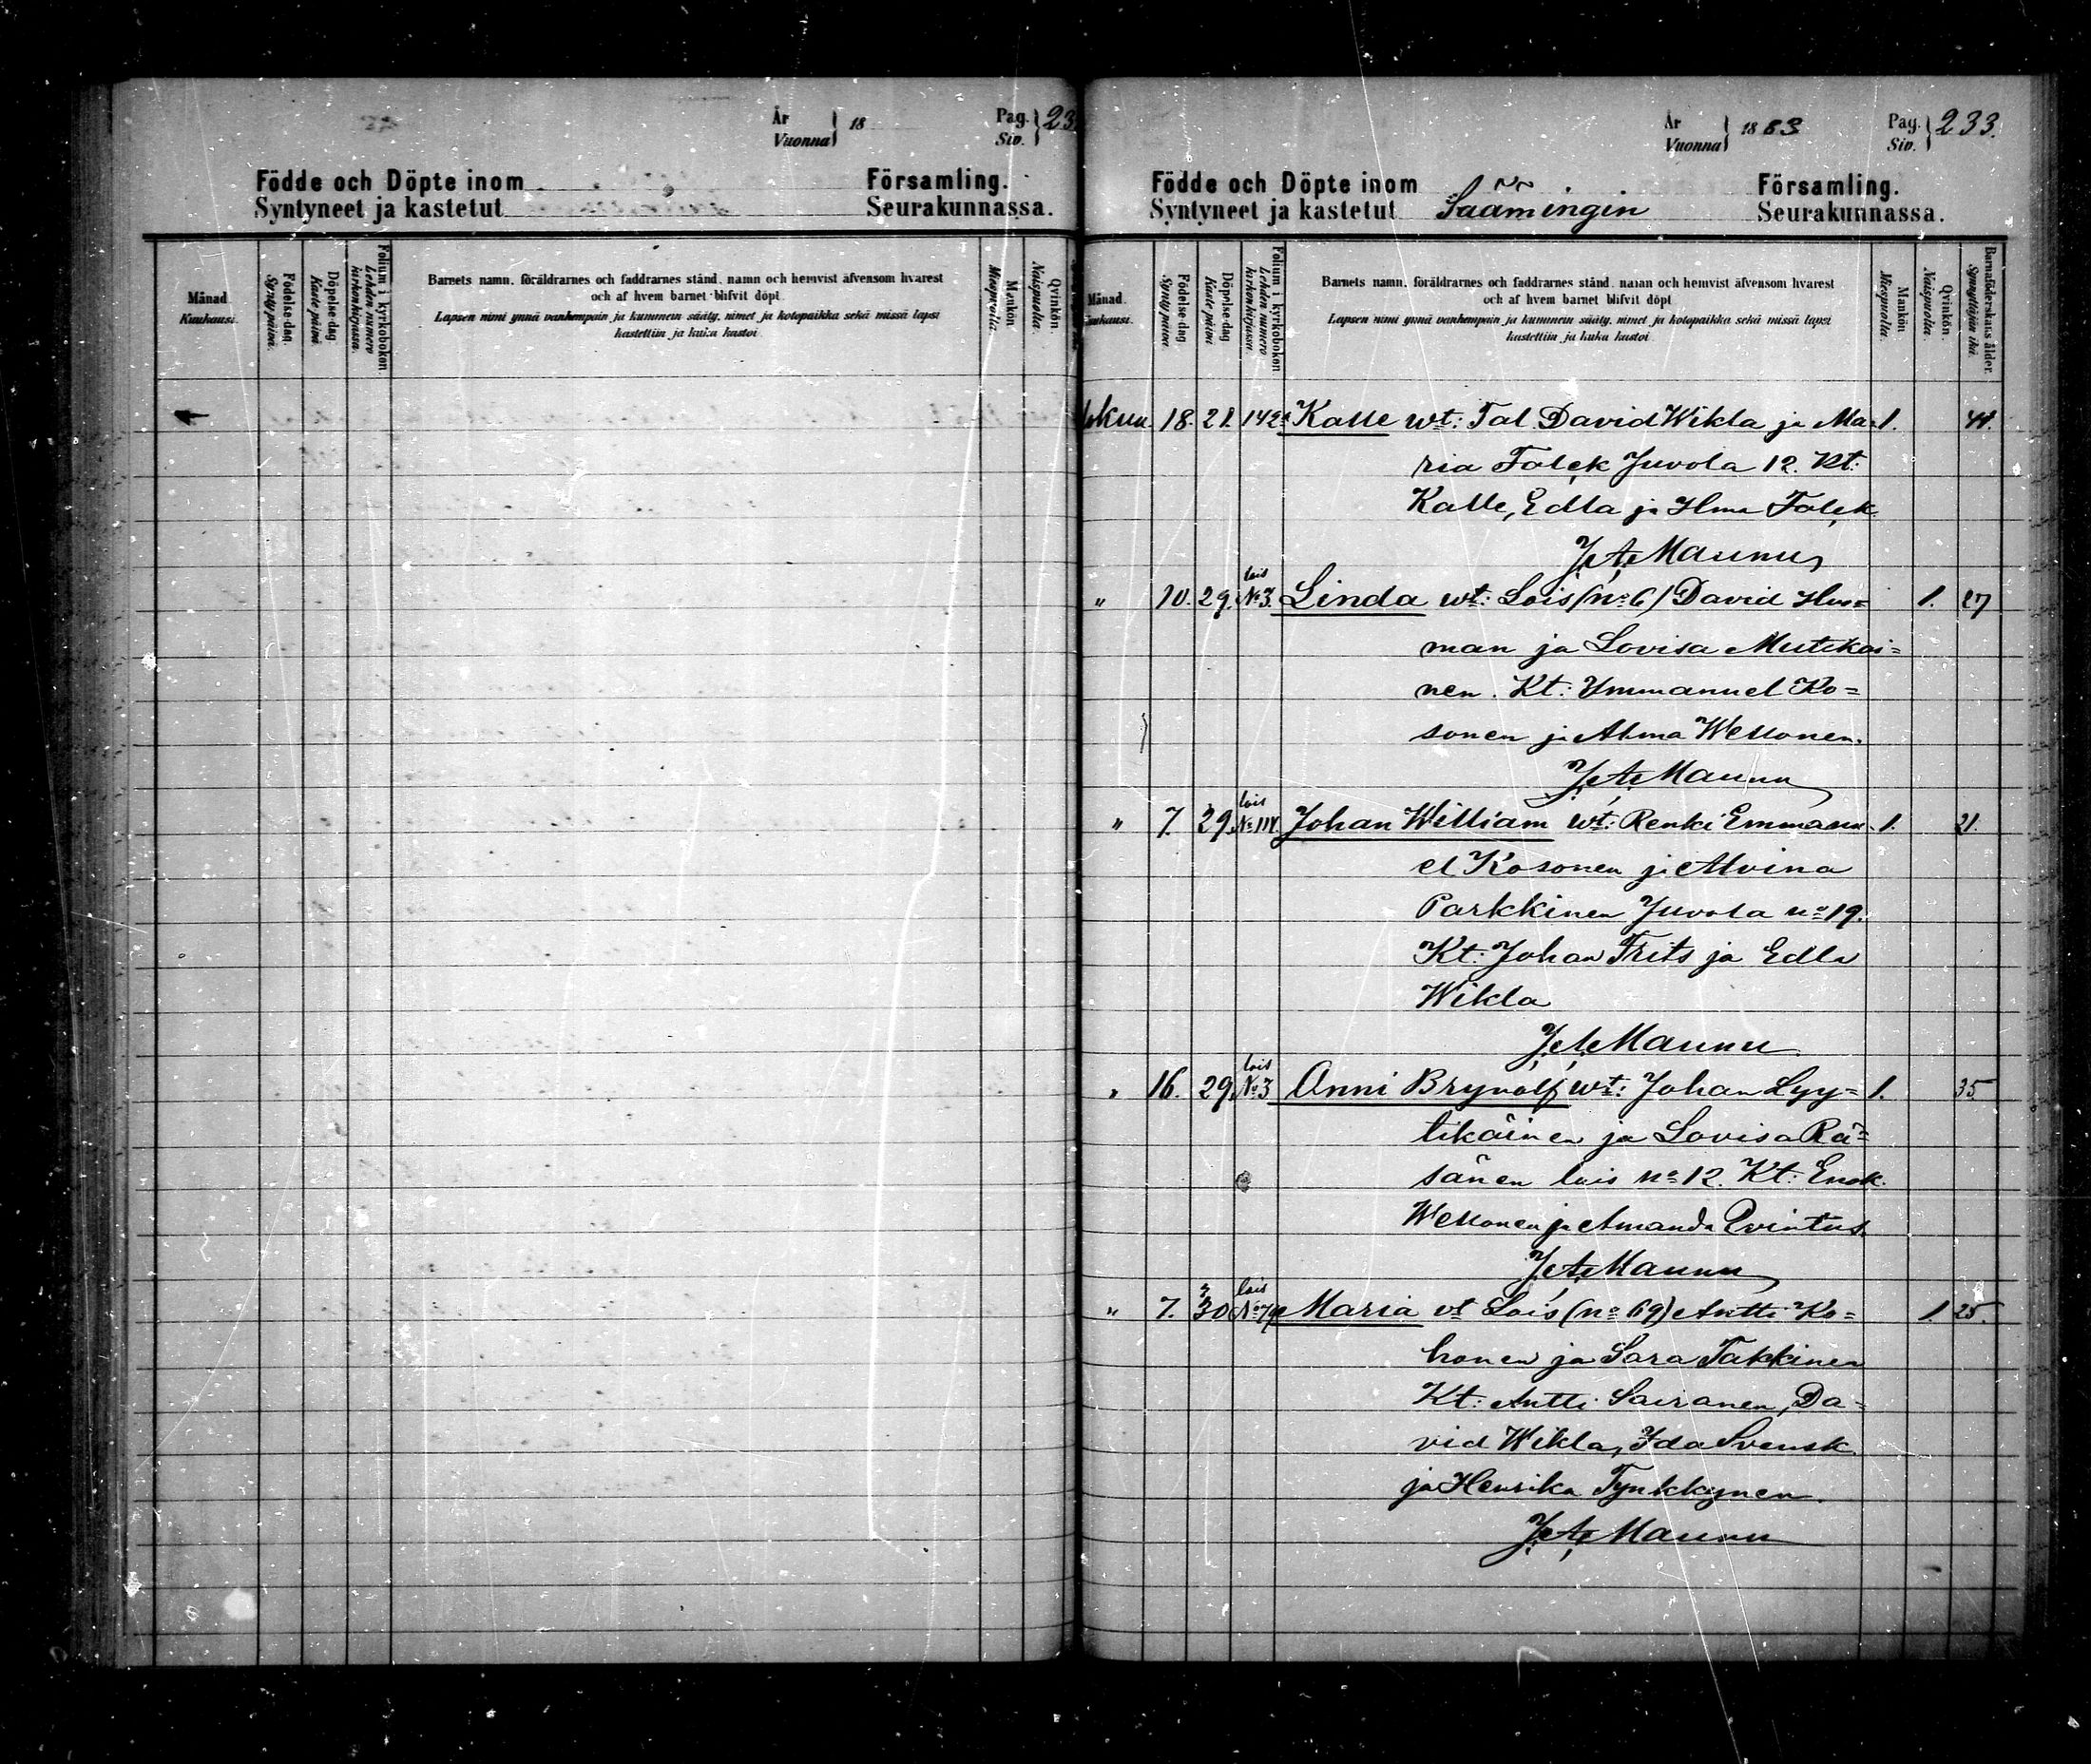 År
Vuonna } 18
Pag.
Siv. } 23
Födde och Döpte inom Församling.
Syntyneet ja kastetut Seurakunnassa.
Månad.
Kuukausi.
Födelse dag.
Synty päivä.
Döpelse dag
Kaste päivä
Folium i kyrkoboken.
Lehden numero
kirkonkirjassa.
Barnets namn, föräldrarnes och faddrarnes stånd, namn och hemvist äfvensom hvarest
och af hvem barnet blifvit döpt.
Lapsen nimi ynnä vanhempain ja kummein sääty, nimet ja kotopaikka sekä missä lapsi
kastettiin ja kuka kastoi.
Mankön
Miespuolia.
Qvinkön.
Naispuolia.
År
Vuonna } 1883
Pag.
Siv. } 233.
Födde och Döpte inom Församling.
Syntyneet ja kastetut Säämingin Seurakunnassa.
Månad.
Födelse dag
Synty päivä.
Döpelse dag
Kaste päivä
Folium i kyrkoboken
Lehden numero
kirkonkirjassa.
Barnets namn, föräldrarnes och faddrarnes stånd, namn och hemvist äfvensom hvarest
och af hvem barnet blifvit döpt
Lapsen nimi ynnä vanhempain ja kummein sääty, nimet ja kotopaikka sekä missä lapsi
kastettiin ja kuka kastoi
Mankön
Miespuolia.
Qvinkön.
Naispuolia.
Barnaföderskans ålder.
Synnyttäjän ikä.
18. 21. 142 Kalle wt: Tal. David Wikla ja Ma= 1. 41.
ria Falck Juvola 12. Kt:
Kalle, Edla ja Ilma Falck.
J. A. Maunu
lois
" 10. 29. No 3. Linda wt: Lois (no 6) David Hus= 1. 27
man ja Lovisa Mutikai=
nen. Kt: Immanuel Ko=
sonen ja Alma Wellonen.
J. A. Maunu
lois
" 7. 29. No 111. Johan William wt: Renki Emmanu- 1. 21.
el Kosonen ja Alvina
Parkkinen Juvola no 19.
Kt: Johan Frits ja Edla
Wikla
J. A. Maunu
lois
" 16. 29. No 3 Anni Brynolf wt: Johan Lyy= 1. 35
tikäinen ja Lovisa Rä=
sänen lois no 12. Kt: Enok
Wellonen ja Amanda Qvintus.
J. A. Maunu
lois
" 7. 30 Maria vt Lois (no 69) Antti Ko= 1. 25.
honen ja Sara Takkinen
Kt: Antti Sairanen, Da=
vid Wikla, Ida Svensk
ja Henrika Tynkkynen.
J. A. Maunu